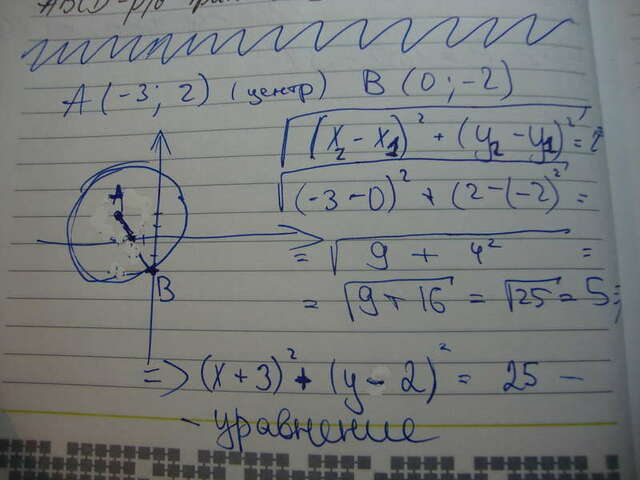 ABCD - р/б
A (-3; 2) (центр) B (0; -2)
√((x₂ - x₁)² + (y₂ - y₁)²) =
√((-3 - 0)² + (2 - (-2)²) =
= √(9 + 4²) =
= √(9 + 16) = √25 = 5;
A
B
=> (x + 3)² + (y - 2)² = 25 -
- уравнение